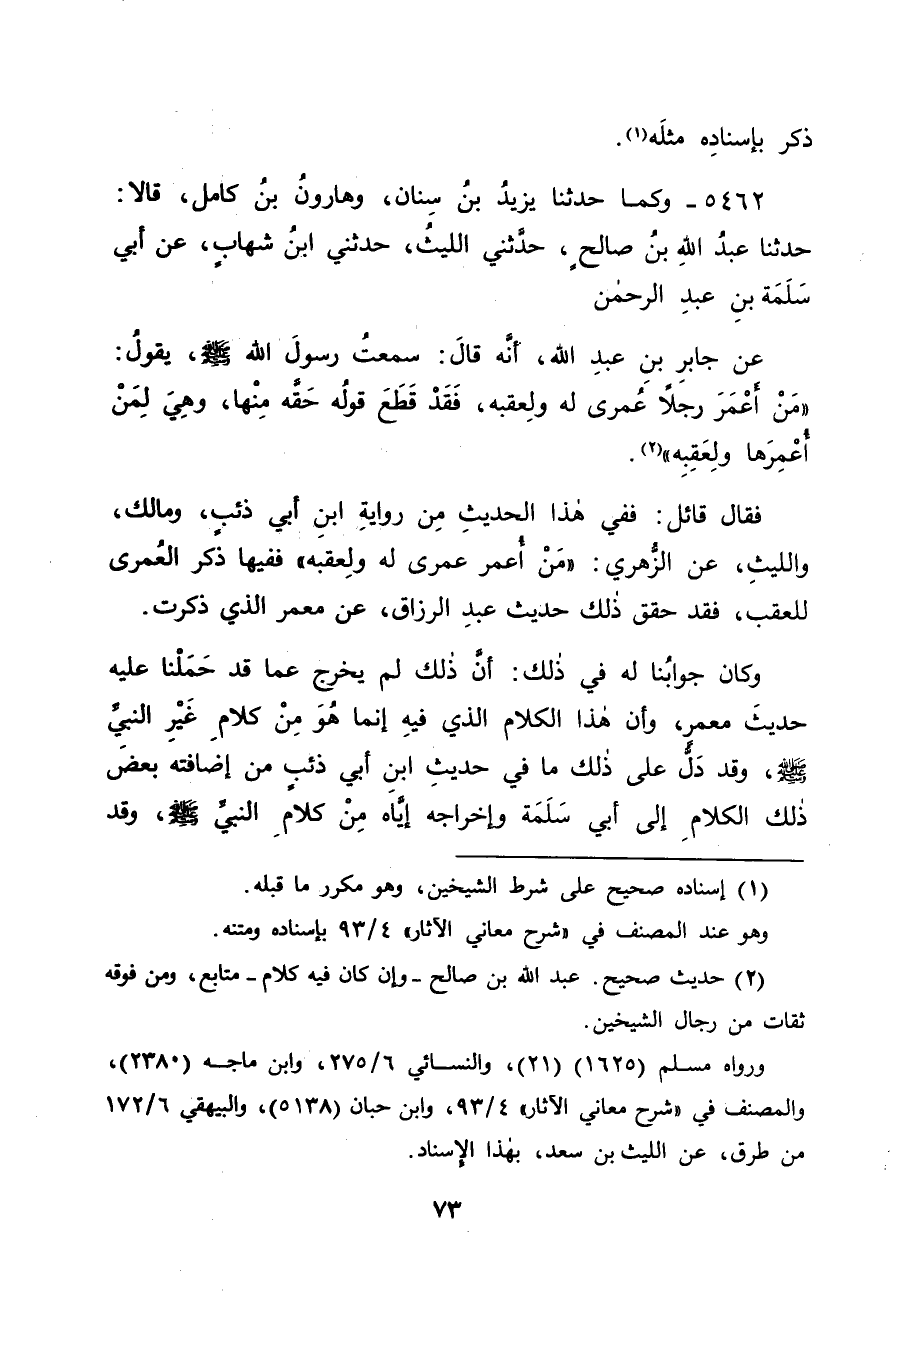 ذكر بإسنادِه مثلَه(١).
٥٤٦٢ ـ وكمـا حدثنا يزيدُ بنُ سِنان، وهارونُ بنُ كامل، قالا:
حدثنا عبدُ اللهِ بنُ صالحٍ، حدَّثني الليثُ، حدثني ابنُ شهابٍ، عن أبي
سَلَمَة بنِ عبدِ الرحمٰن
عن جابرِ بنِ عبدِ الله، أنَّه قالَ: سمعتُ رسولَ الله ﷺ، يقولُ:
«مَنْ أَعْمَرَ رجلًا عُمرى له ولِعقبه، فَقَدْ قَطَعَ قولُه حَقَّه مِنْها، وهِيَ لِمَنْ
أُعْمِرَها ولِعَقِبِه»(٢).
فقال قائل: ففي هٰذا الحديثِ مِن روايةِ ابنِ أبي ذئبٍ، ومالك،
والليثِ، عن الزُّهري: «مَنْ أُعمر عمرى له ولِعقبه» ففيها ذكر العُمرى
للعقب، فقد حقق ذٰلك حديث عبدِ الرزاق، عن معمر الذي ذكرت.
وكان جوابُنا له في ذٰلك: أنَّ ذٰلك لم يخرج عما قد حَمَلْنا عليه
حديثَ معمرٍ، وأن هٰذا الكلام الذي فيهِ إنما هُوَ مِنْ كلامِ غَيْرِ النبيِّ
ﷺ، وقد دَلَّ على ذٰلك ما في حديثِ ابنِ أبي ذئبٍ من إضافته بعضَ
ذٰلك الكلامِ إلى أبي سَلَمَة وإخراجه إيَّاه مِنْ كلامِ النبيِّ ﷺ، وقد
(١) إسناده صحيح على شرط الشيخين، وهو مكرر ما قبله.
وهو عند المصنف في «شرح معاني الآثار» ٩٣/٤ بإسناده ومتنه.
(٢) حديث صحيح. عبد الله بن صالح ـ وإن كان فيه كلام ـ متابع، ومن فوقه
ثقات من رجال الشيخين.
ورواه مسـلم (١٦٢٥) (٢١)، والنسـائي ٢٧٥/٦، وابن ماجـه (٢٣٨٠)،
والمصنف في «شرح معاني الآثار» ٩٣/٤، وابن حبان (٥١٣٨)، والبيهقي ١٧٢/٦
من طرق، عن الليث بن سعد، بهٰذا الإسناد.
٧٣